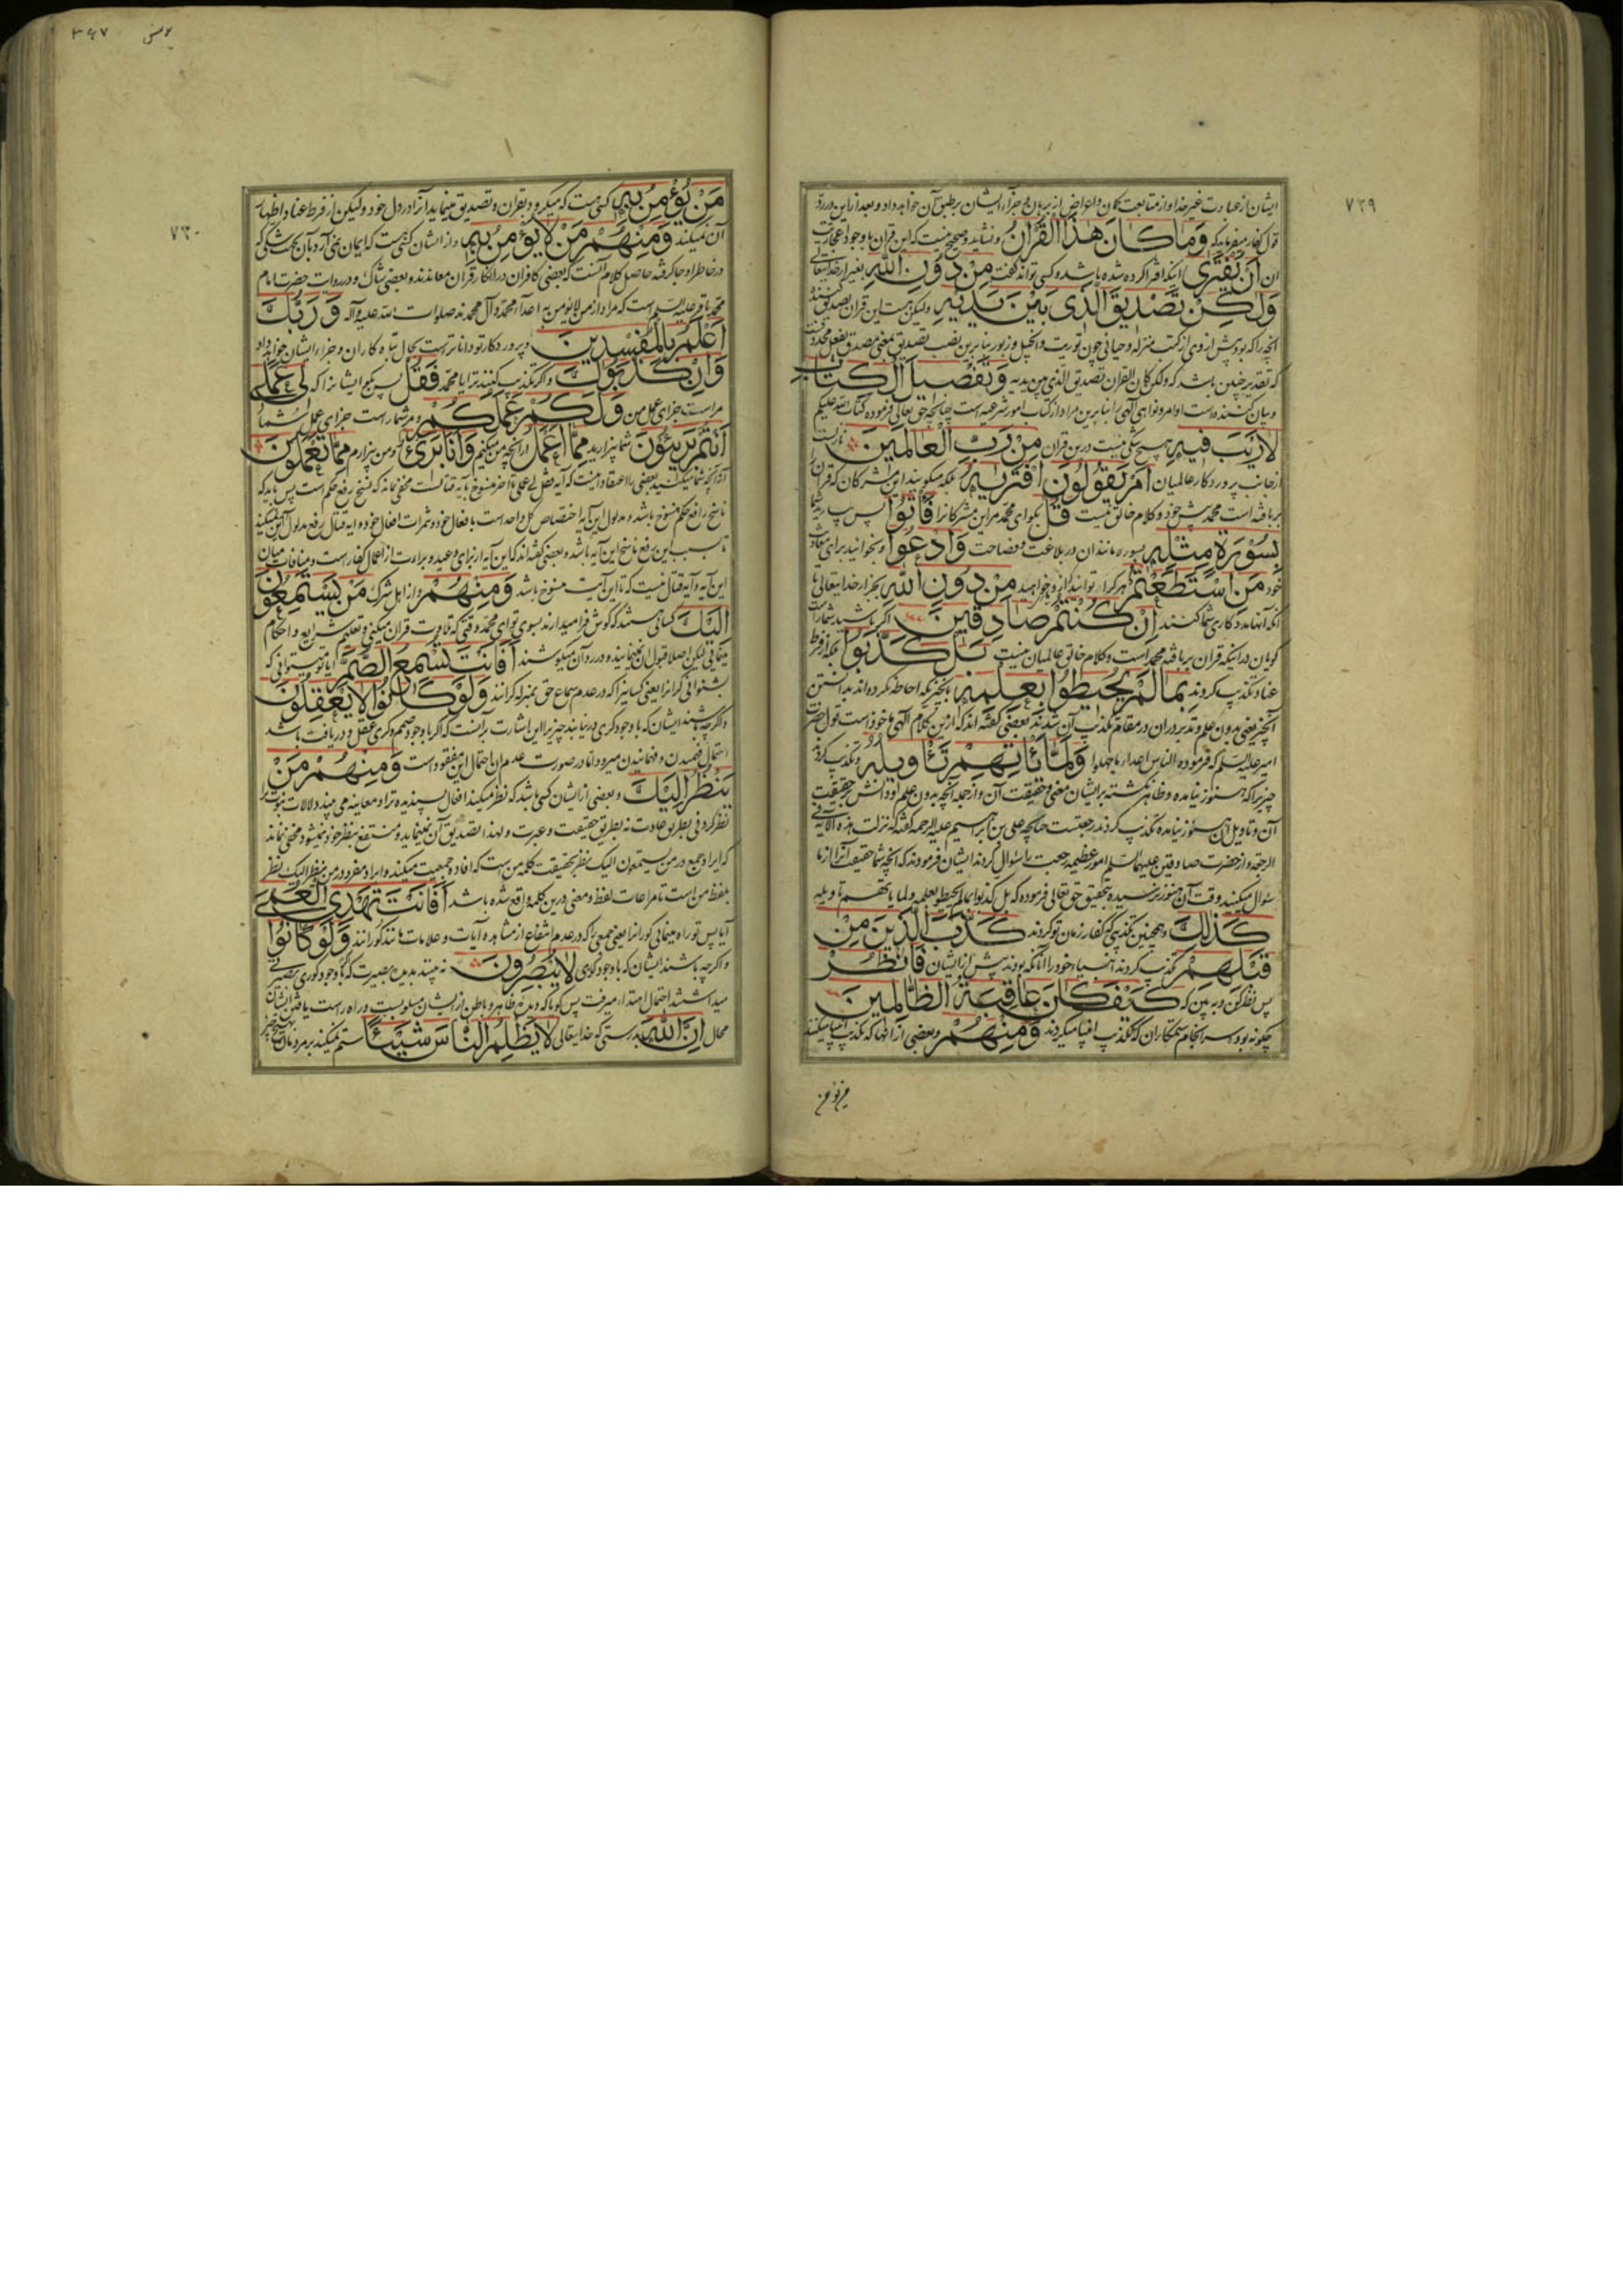 ٧٢٩
ایشان از عبادت غیر خدا و از متابعت گمان و اعراض از برهان و جزاء ایشان بر طبق آن خواهد داد و بعد از این در رد
قول کفار میفرماید که وَمَا كَانَ هَذَا الْقُرْآنُ و نشاید و صحیح نیست که این قرآن با وجود اعجازیت
ان أَنْ يُفْتَرَى اینکه افترا کرده شده باشد و کسی تواند گفت مِنْ دُونِ اللَّهِ بغیر از خدایتعالی
وَلَكِنْ تَصْدِيقَ الَّذِي بَيْنَ يَدَيْهِ ولیکن هست این قرآن تصدیق کننده
آنچه را که بود پیش از وی از کتب منزله و حیانی چون توریت و انجیل و زبور بنابرین نصب تصدیق بمعنی مصدق بفعل محذوفست
که تقدیر چنین باشد که ولکن کان القران تصدیق الذی بین یدیه وَتَفْصِيلَ الْكِتَابِ
و بیان کننده است اوامر و نواهی الهی را بنابرین مراد از کتاب امور شرعیه است چنانچه حق تعالی فرموده کتاب الله علیکم
لَا رَيْبَ فِيهِ هیچ شکی نیست درین قرآن مِنْ رَبِّ الْعَالَمِينَ نازلست
از جانب پروردگار عالمیان أَمْ يَقُولُونَ افْتَرَاهُ بلکه میگویند این مشرکان که قرآن را
بر بافته است محمد پیش خود و کلام خالق نیست قُلْ بگو ای محمد مر این مشرکانرا فَأْتُوا پس بیارید شما
بِسُورَةٍ مِثْلِهِ بسوره مانند آن در بلاغت و فصاحت وَادْعُوا و بخوانید برای معاونت
خود مَنِ اسْتَطَعْتُمْ هر که را توانید که از و خواهید مِنْ دُونِ اللَّهِ بجز از خدایتعالی تا
آنکه آنها مددکاری شما کنند إِنْ كُنْتُمْ صَادِقِينَ اگر باشید شما راست
گویان در اینکه قرآن بر بافته محمد است و کلام خالق عالمیان نیست بَلْ كَذَّبُوا بلکه از فرط
عناد تکذیب کردند بِمَا لَمْ يُحِيطُوا بِعِلْمِهِ بآنچیزیکه احاطه نکرده اند بدانستن
آنچیز یعنی بدون علم و تدبر در آن در مقام تکذیب آن شدند بعضی گفته اند که ازین کلام الهی ماخوذ است قول حضرت
امیر علیه السلم که فرموده الناس اعداء ما جهلوا وَلَمَّا يَأْتِهِمْ تَأْوِيلُهُ و تکذیب کردند
چیزیرا که هنوز نیامده و ظاهر نگشته بر ایشان معنی و حقیقت آن و از جمله آنچه بدون علم و دانش بر حقیقت
آن و تاویل آن هنوز نیامده تکذیب کردند رجعتست چنانچه علی بن ابراهیم علیه الرحمه گفته که نزلت هذه الآیة فی
الرجعة و از حضرت صادقین علیهما السلم امور عظیمه رجعت را سؤال کردند ایشان فرمودند که آنچه شما حقیقه آنرا از ما
سؤال میکنید وقت آن هنوز نرسیده بتحقیق حق تعالی فرموده که بل کذبوا بما لم یحیطوا بعلمه ولما یاتهم تاویله
كَذَلِكَ و همچنین تکذیبی که کفار زمان تو کردند كَذَّبَ الَّذِينَ مِنْ
قَبْلِهِمْ تکذیب کردند انبیاء خود را آنانکه بودند پیش از ایشان فَانْظُرْ
پس نظر کن و به بین که كَيْفَ كَانَ عَاقِبَةُ الظَّالِمِينَ
چگونه بود سر انجام ستمکاران که تکذیب انبیا میکردند وَمِنْهُمْ و بعضی از آنها که تکذیب انبیا میکنند
یونس ٣٤٧
٧٣٠
مَنْ يُؤْمِنُ بِهِ کسی هست که میگرود بقرآن و تصدیق مینماید آنرا در دل خود ولیکن از فرط عناد اظهار
آن نمیکند وَمِنْهُمْ مَنْ لَا يُؤْمِنُ بِهِ و از ایشان کسی هست که ایمان نمی آرد بآن بجهت شکی که
در خاطر او جا گرفته حاصل کلام آنست که بعضی کافران در انکار قرآن معاندند و بعضی شاک و در روایت حضرت امام
محمد باقر علیه السلم است که مراد از من لا یؤمن به اعداء محمد و آل محمدند صلوات الله علیه و آله وَرَبُّكَ
أَعْلَمُ بِالْمُفْسِدِينَ و پروردگار تو داناتر است بحال تباه کاران و جزاء ایشان خواهد داد
وَإِنْ كَذَّبُوكَ و اگر تکذیب کنند ترا یا محمد فَقُلْ پس بگو ایشانرا که لِي عَمَلِي
مراست جزای عمل من وَلَكُمْ عَمَلُكُمْ و مر شما راست جزای عمل شما
أَنْتُمْ بَرِيئُونَ شما بیزارید مِمَّا أَعْمَلُ از آنچه من میکنم وَأَنَا بَرِيءٌ و من بیزارم مِمَّا تَعْمَلُونَ
از آنچه شما میکنید بعضی را اعتقاد اینست که آیه فقل لی عملی تا آخر منسوخ بآیه قتالست مخفی نماند که نسخ رفع حکم است پس باید که
ناسخ رافع حکم منسوخ باشد و مدلول این آیه اختصاص کل واحد است بافعال خود و ثمرات افعال خود و آیه قتال رفع مدلول این نمیکند
تا سبب این رفع ناسخ این آیه باشد و بعضی گفته اند که این آیه از برای وعید و براءت از اعمال کفار است و منافات میان
این آیه و آیه قتال نیست که تا این آیت منسوخ باشد وَمِنْهُمْ و از اهل شرک مَنْ يَسْتَمِعُونَ
إِلَيْكَ کسانی هستند که گوش فرا میدارند بسوی تو ای محمد وقتی که تلاوت قرآن میکنی و تعلیم شرایع و احکام
مینمائی لیکن اصلا قبول آن نمی نمایند و در رد آن میکوشند أَفَأَنْتَ تُسْمِعُ الصُّمَّ آیا تو میتوانی که
بشنوانی کرانرا یعنی کسانیرا که در عدم سماع حق بمنزله کرانند وَلَوْ كَانُوا لَا يَعْقِلُونَ
و اگر چه باشند ایشان که با وجود کری در نیابند چیزیرا این اشارت بر آنست که اگر با وجود صمم و کری عقل و دریافت باشد
احتمال فهمیدن و فهمانیدن میرود اما در صورت عدم آن احتمال این مفقود است وَمِنْهُمْ مَنْ
يَنْظُرُ إِلَيْكَ و بعضی از ایشان کسی باشد که نظر میکند افعال پسندیده ترا و معاینه می بیند دلالات نبوت را
نظر کردنی بطریق عادت نه بطریق حقیقت و عبرت و لهذا تصدیق آن نمینماید و منتفع بنظر خود نمیشود مخفی نماند
که ایراد جمع در من یستمعون الیک نظر بحقیقت کلمه من است که افاده جمعیت میکند و ایراد مفرد در من ینظر الیک نظر
بلفظ من است تا مراعات لفظ و معنی درین کلمه واقع شده باشد أَفَأَنْتَ تَهْدِي الْعُمْيَ
آیا پس تو راه مینمائی کورانرا یعنی جمعی را که در عدم انتفاع از مشاهده آیات و علامات مانند کورانند وَلَوْ كَانُوا
و اگر چه باشند ایشان که با وجود کوری لَا يُبْصِرُونَ نه بینند بدیده بصیرت که با وجود کوری بصیرتی
میداشتند احتمال اهتداء میرفت پس گویا که دیده ظاهر و باطن از ایشان مسلوبست و راه راست یافتن ایشان
محال إِنَّ اللَّهَ بدرستی که خدایتعالی لَا يَظْلِمُ النَّاسَ شَيْئًا ستم نمیکند بر مردمان هیچ چیز